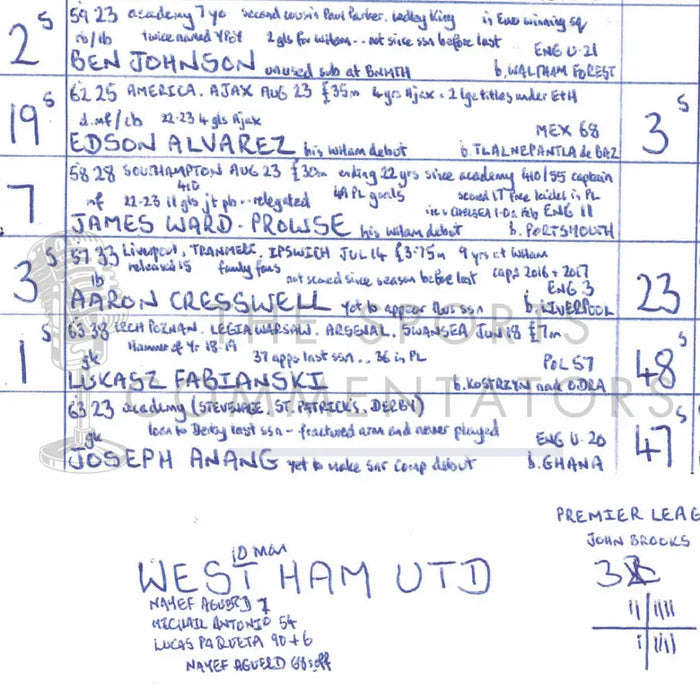 2 S
5 9 23 academy 7 yo second cousin Paul Parker. Ledley King in Euro winning sq
rb/lb twice named YPOY 2 gls for WHam.. not since ssn before last ENG U-21
BEN JOHNSON unused sub at BNMTH b. WALTHAM FOREST
19 S
6 2 25 AMERICA. AJAX AUG 23 £35m 4 yrs Ajax - 2 lge titles under EtH
d.mf/cb 22-23 4 gls Ajax MEX 68
EDSON ALVAREZ his WHam debut b. TLALNEPANTLA de BAZ
3 S
7
5 8 28 SOUTHAMPTON AUG 23 £30m ending 22 yrs since academy 410/55 captain
mf 22-23 11 gls jt pb -- relegated 49 PL goals scored 17 free kicks in PL
ENG 11
JAMES WARD-PROWSE his WHam debut b. PORTSMOUTH
3 S
5 7 33 Liverpool, TRANMERE, IPSWICH JUL 14 £3.75m 9 yrs at WHam
released 15 family fans not scored since season before last caps 2016 + 2017
lb ENG 3
AARON CRESSWELL yet to appear this ssn b. LIVERPOOL
23
1 S
6 3 38 LECH POZNAN. LEGIA WARSAW. ARSENAL. SWANSEA JUN 18 £7m
Hammer of Yr 18-19
gk 37 apps last ssn .. 36 in PL POL 57
LUKASZ FABIANSKI b. KOSTRZYN nad ODRA
48 S
6 3 23 academy (STEVENAGE, ST. PATRICK'S, DERBY)
loan to Derby last ssn - fractured arm and never played ENG U-20
gk
JOSEPH ANANG yet to make snr comp debut b. GHANA
47 S
THE SPORTS COMMENTATORS
PREMIER LEAG
JOHN BROOKS
10 Man
WEST HAM UTD
3
NAYEF AGUERD 7
MICHAIL ANTONIO 54
LUCAS PAQUETA 90+6
NAYEF AGUERD 68 s.off